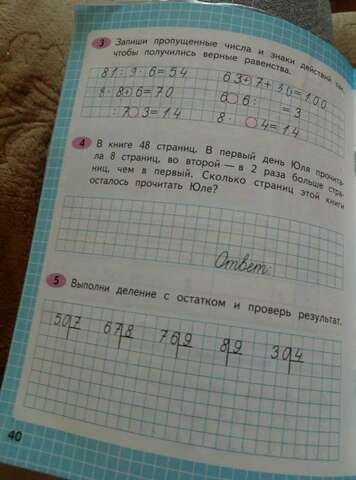 3 Запиши пропущенные числа и знаки действий так,
чтобы получились верные равенства.
81 : 9 · 6 = 54
63 + 7 + 30 = 100
8 · 8 + 6 = 70
6 6 : = 3
: 7 3 = 14
8 · 4 = 14
4 В книге 48 страниц. В первый день Юля прочита-
ла 8 страниц, во второй — в 2 раза больше стра-
ниц, чем в первый. Сколько страниц этой книги
осталось прочитать Юле?
Ответ:
5 Выполни деление с остатком и проверь результат.
50 7 67 8 76 9 8 9 30 4
40